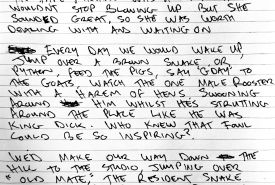 WOULDN'T STOP BLOWING UP BUT SHE
SOUNDED GREAT, SO SHE WAS WORTH
DEALING WITH AND WAITING ON
EVERY DAY WE WOULD WAKE UP,
JUMP OVER A BROWN SNAKE OR
PYTHON, FEED THE PIGS, SAY G'DAY TO
THE GOATS. WATCH THE ONE MALE ROOSTER
WITH A HAREM OF HENS SWOONING
AROUND HIM WHILST HE'S STRUTTING
AROUND THE PLACE LIKE HE WAS
KING DICK. WHO KNEW THAT FOWL
COULD BE SO INSPIRING?.
WE'D MAKE OUR WAY DOWN THE
HILL TO THE STUDIO JUMPING OVER
"OLD MATE", THE RESIDENT SNAKE